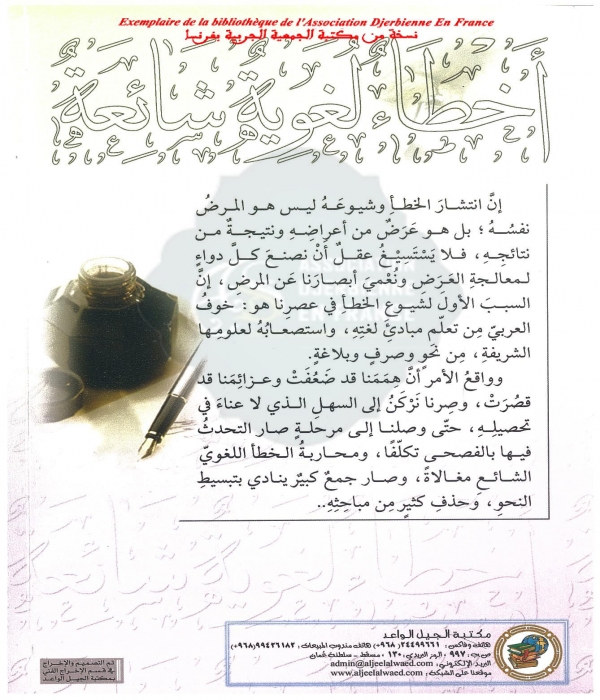 Exemplaire de la bibliothèque de l'Association Djerbienne En France
نسخة من مكتبة الجمعية الجربية بفرنسا
أخطاء لغوية شائعة
إنَّ انتشارَ الخطأِ وشيوعَهُ ليس هو المرضُ
نفسُهُ؛ بل هو عَرَضٌ من أعراضِهِ ونتيجةٌ من
نتائجِهِ، فلا يَسْتَسِيْغُ عقلٌ أنْ نصنعَ كلَّ دواءٍ
لمعالجةِ العَرَضِ ونُعْمِيَ أبصارَنا عَن المرضِ، إنَّ
السببَ الأولَ لشيوعِ الخطأ في عصرِنا هو: خوفُ
العربيِّ مِن تعلّمِ مبادئِ لغتِهِ، واستصعابُهُ لعلومِها
الشريفةِ، مِن نحوٍ وصرفٍ وبلاغةٍ.
وواقعُ الأمرِ أنَّ هِمَمَنا قد ضَعُفَتْ وعزائِمَنا قد
قصُرَتْ، وصِرنا نَرْكَنُ إلى السهلِ الذي لا عناءَ في
تحصيلِهِ، حتّى وصلنا إلى مرحلةٍ صار التحدثُ
فيها بالفصحى تكلّفًا، ومحاربةُ الخطأ اللغويّ
الشائعِ مغالاةً، وصار جمعٌ كبيرٌ ينادي بتبسيطِ
النحوِ، وحذفِ كثيرٍ مِن مباحِثِهِ..
ASSOCIATION
DJERBIENNE
EN FRANCE
مكتبة الجيل الواعد
هاتف وفاكس: ٢٤٤٩٩٦٦١ (٩٦٨+) هاتف مندوب المبيعات: ٩٩٤٣٦١٨٢(٩٦٨+)
ص.ب: ٩٩٧، الرمز البريدي: ١٣٠، مسقط - سلطنة عُمان
البريد الإلكتروني: admin@aljeelalwaed.com
موقعنا على الشبكة: www.aljeelalwaed.com
تم التصميم والإخراج
في قسم الإخراج الفني
بمكتبة الجيل الواعد